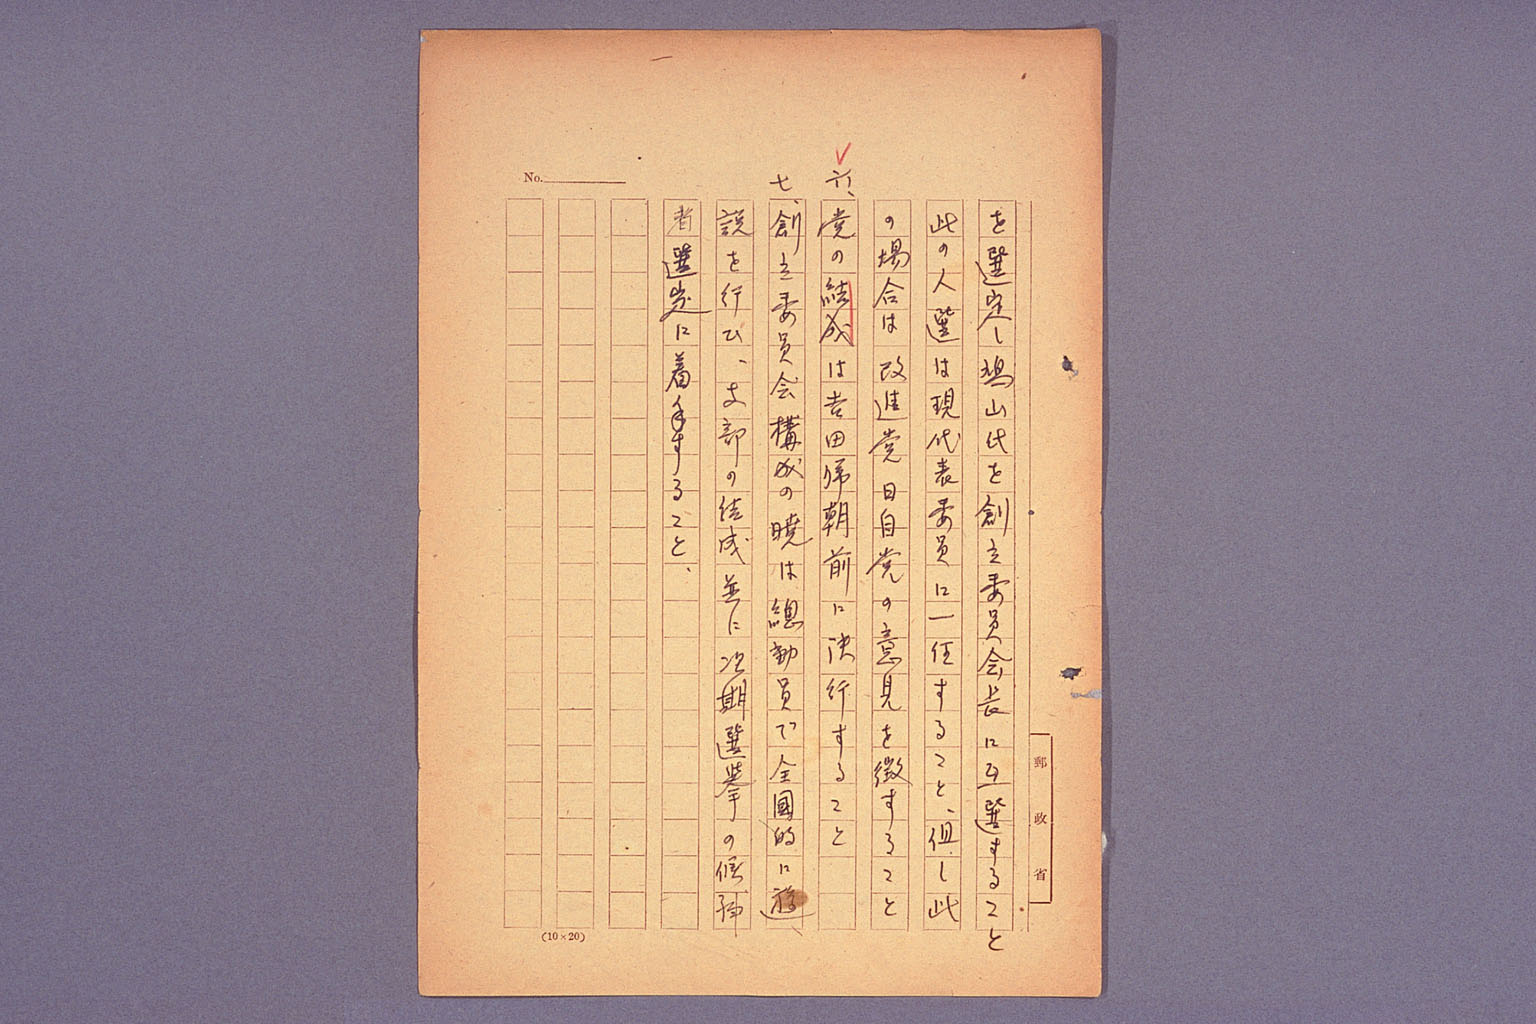 No.
郵政省
を選定し鳩山氏を創立委員会長に互選すること
此の人選は現代表委員に一任すること、但し此
の場合は改進党日自党の意見を徴すること
六、党の結成は吉田帰朝前に決行すること
七、創立委員会構成の暁は總動員で全國的に遊
説を行ひ、支部の結成並に次期選挙の候補
者選定に着手すること、
(10×20)